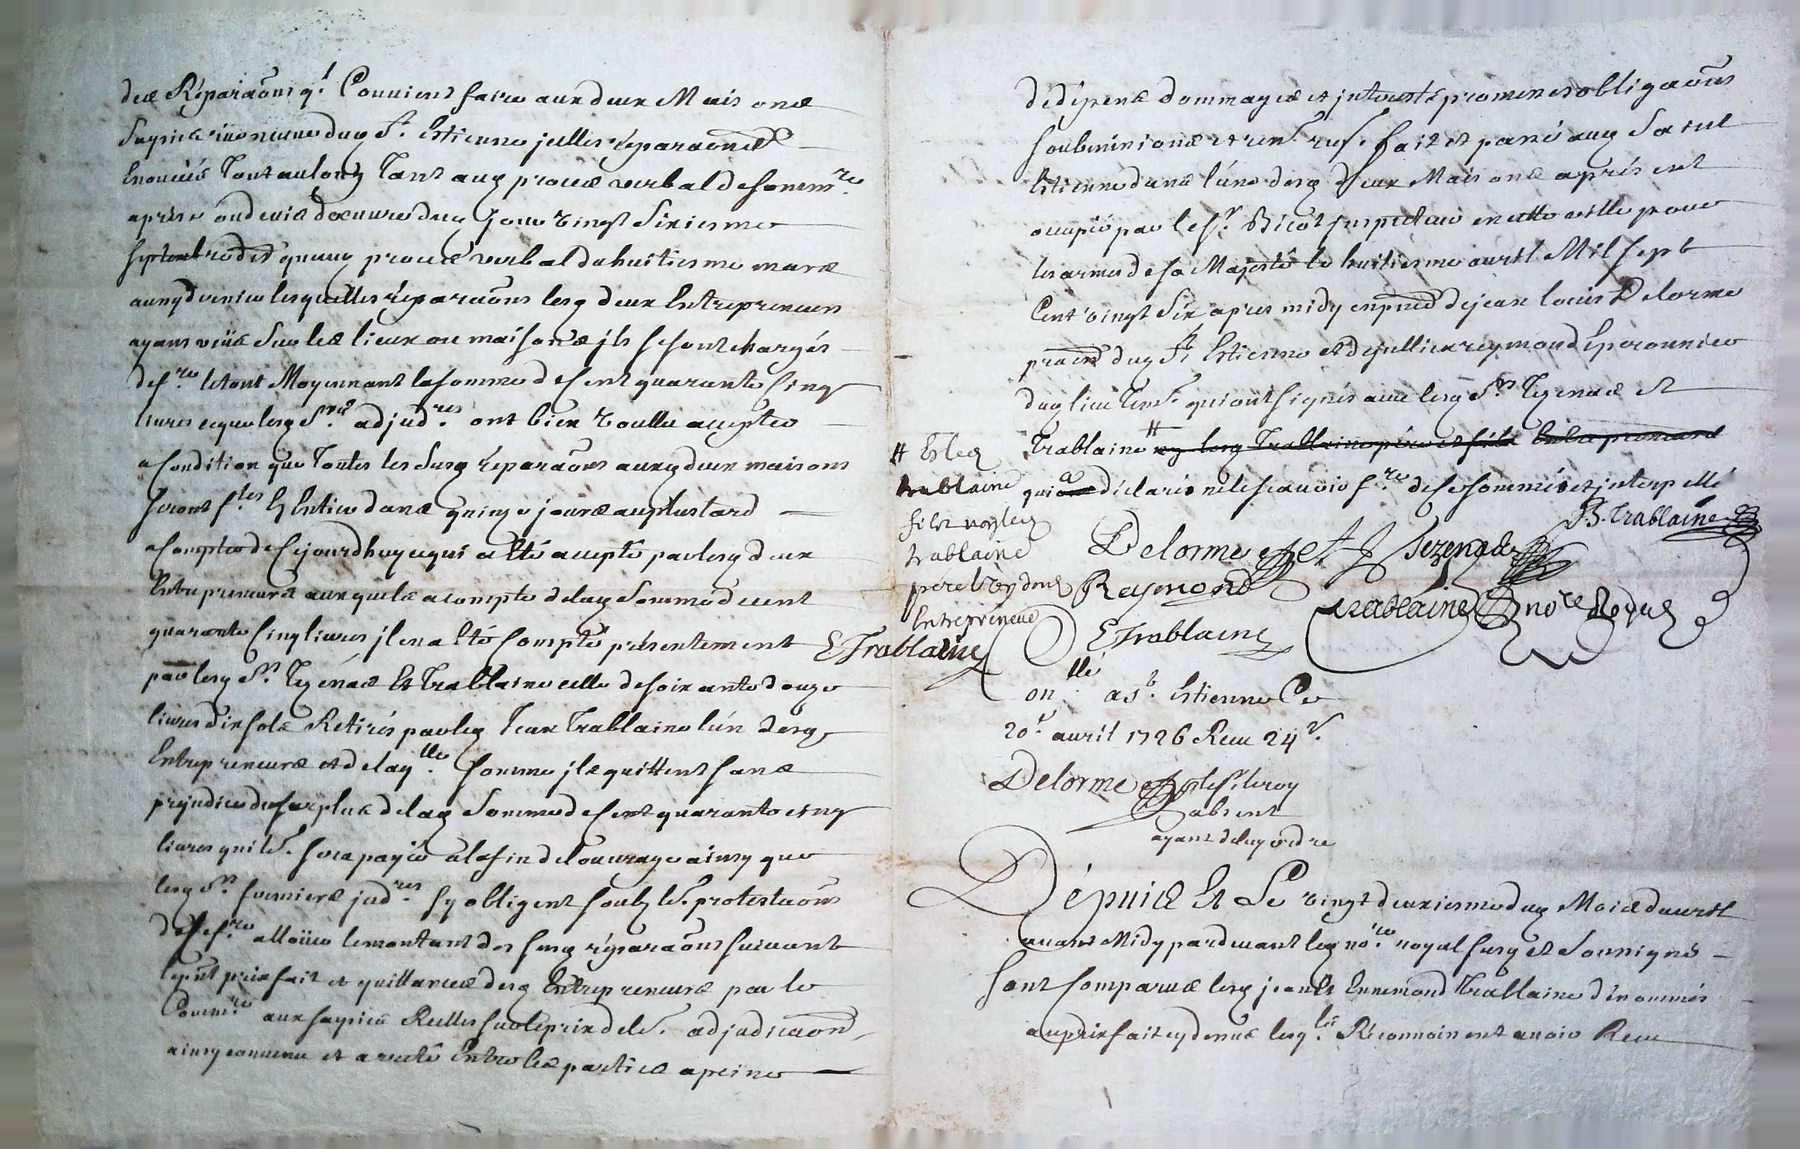 des Réparaons q.l Convient faire aux deux Maisons
saysies dud S.t Estienne jelles réparaons
Enoncés Tout au long Tant aud procès verbal de comm.re
apris ou devis d'oeuvre du jour vingt sixiesme
septembre d.t qu'aud procès verbal du huitiesme mars
aud dernier lesquelles réparaons lesd deux Entrepreneurs
ayans veüe sur les lieux ou maisons jls se sont chargés
de f.re le tout Moyennant la somme de Cent quarante Cinq
livres ce que lesd S.rs adjud.res ont bien voullu accepter
a Condition que Toutes les susd réparaons auxd deux maisons
seront f.tes En Entier dans quinze jours au plus tard
a Compter de Cejourdhuy ce qui a été accepté par lesd deux
Entrepreneurs auxquels a compte de lad Somme de cent
quarante Cinq livres jl en a été Compté présentement
par lesd S.rs Tezenas Et Trablaine celle de soixante douze
livres dix sols Retirés par led Jean Trablaine l'un desd
Entrepreneurs et de laq.lle somme jls quittent sans
préjudice du surplus de lad Somme de Cent quarante cinq
livres qui le. sera payée a la fin de l'ouvrage ainsy que
lesd S.rs fermiers jud.res sy obligent soubz le. protestaons
de se f.re alloüer le montant des susd réparaons suivant
le pnt prix fait et quittances desd Entrepreneurs par le
Comm.re aux saysies Reelles sur le prix de le. adjudicaon
ainsy convenu et arresté Entre les parties a peine
de dépens dommages et jnterests promesses obligaons
soubmissions et ren. fait et passé aud Saint
Estienne dans l'une desd deux Maisons après est
occupée par le S.r Bicot jnspecteur en cette ville pour
les armes de sa Majesté le huitiesme avril Mil sept
Cent vingt Six apres midy en pnce de jean louis Delorme
pracn dud S.t Estienne et de jullien reymond Eperonnier
dud lieu Tem. qui ont signés avec lesd S.rs Tezenas Et
Trablaine # ny lesd Trablaine père et fils Entrepreneurs
qui a déclaré ne le scavoir f.re de ce sommés et jnterpellé
# Et led
trablaine
fils non led
trablaine
père Verdond
Entrepreneur
E Trablaine
J.B. Trablaine
Delorme
Tezenas
Raymond
trablaine
no.re Royal
E Trablaine
on.llé a S.t Estienne Ce
20.e avril 1726 Reçu 24 s.
Delorme
le S.r leroy
absent
ayant de luy ordre
Dépuis Et Le vingt deuxiesme dud Mois d'avril
avant Midy pardevant led no.re royal susd et Soussigné
sont Comparus lesd jean Et Ennemond Trablaine dénommés
au prix fait cy dessus lesq.ls Réconnoissent avoir Reçu